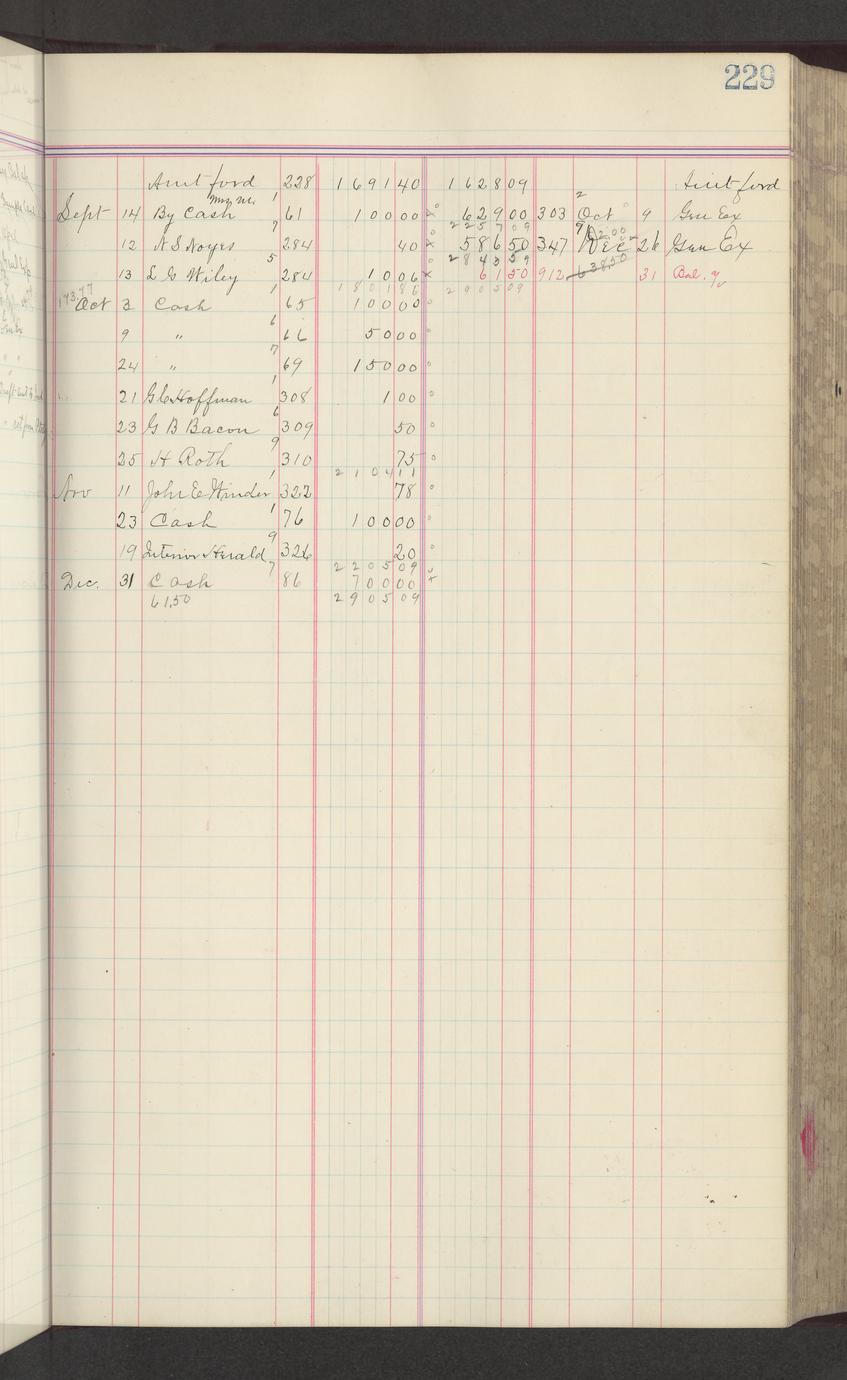 229
Amt ford 228 1691 40 1628 09 Amt ford
Sept 14 By Cash 61 100 00 629 00 303 Oct 9 Gen Ex
2257 09
12 N S Noyes 284 40 586 50 347 Dec 26 Gen Ex
2843 59
13 L G Wiley 284 10 06 61 50 912 31 Bal.
1801 86 2905 09
173.77
Oct 3 Cash 65 100 00
9 " 66 50 00
24 " 69 150 00
21 G C Hoffman 308 1 00
23 G B Bacon 309 50
25 H Roth 310 75
2104 11
Nov 11 John E Winder 322 78
23 Cash 76 100 00
19 Interior Herald 326 20
2205 09
Dec. 31 Cash 86 700 00
61.50 2905 09